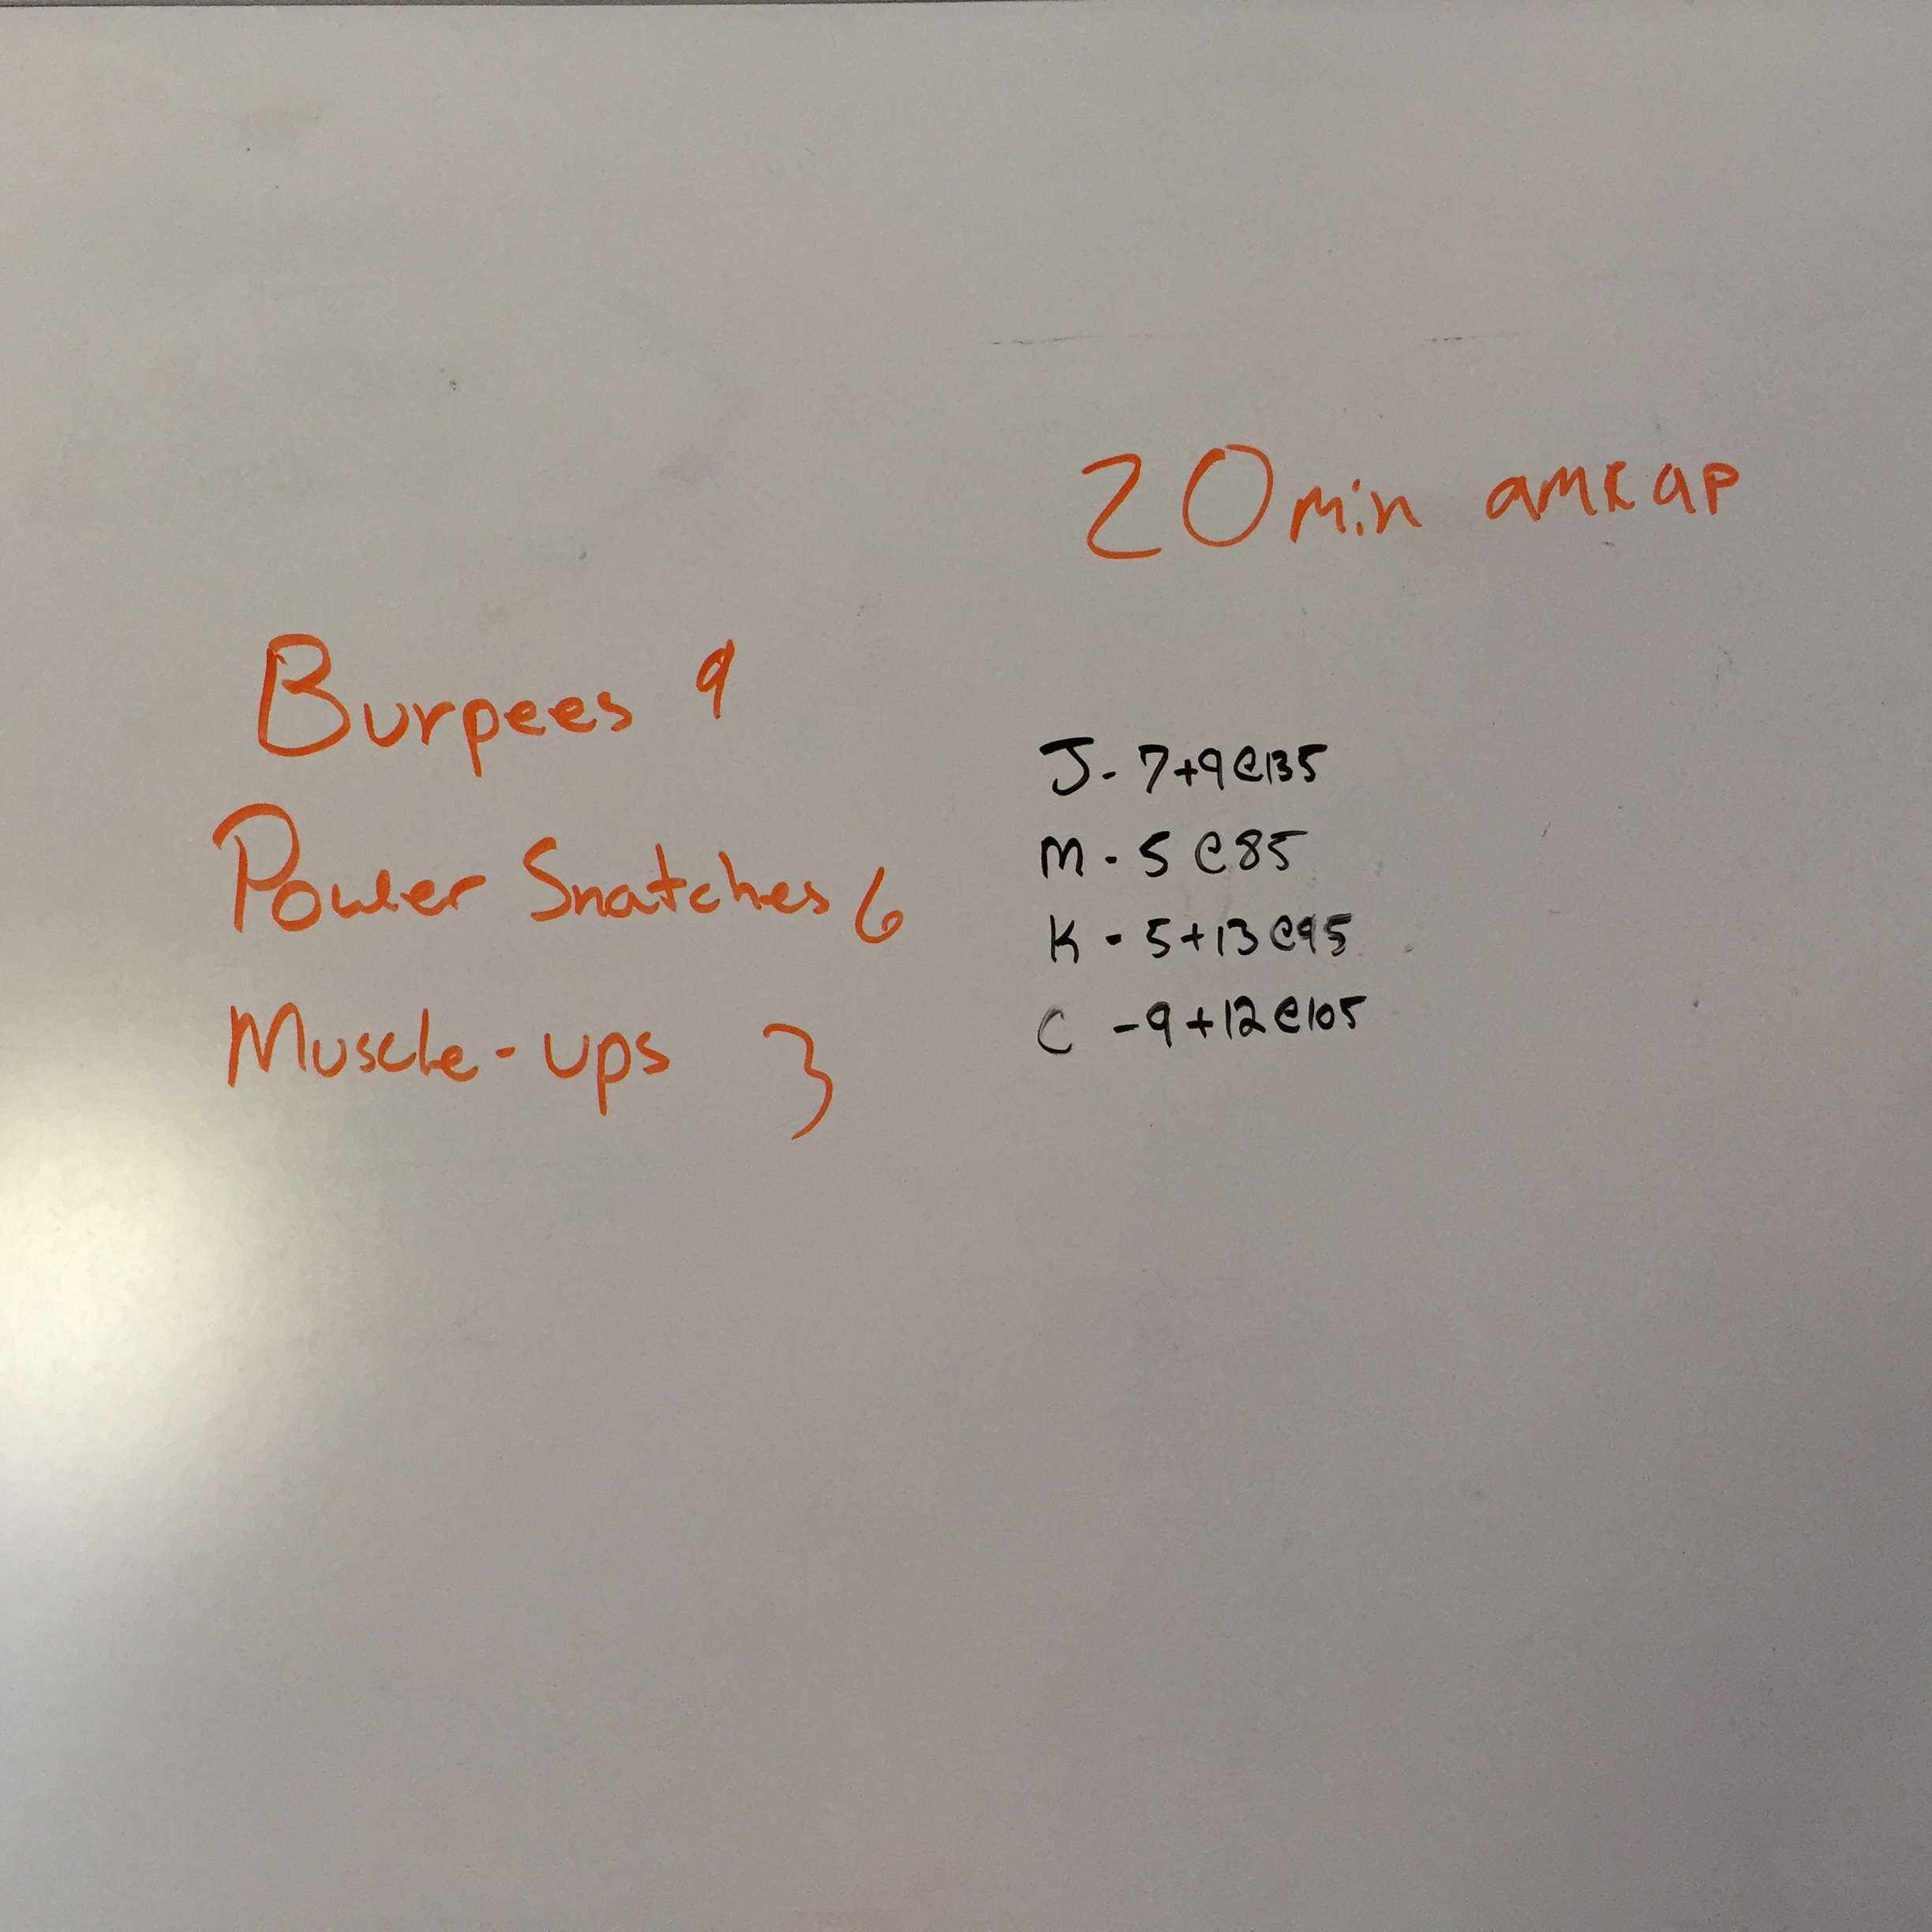 20 min amrap
Burpees 9
Power Snatches 6
Muscle-ups 3
J- 7+9@135
M - 5 @85
K - 5+13@95
C -9+12@105